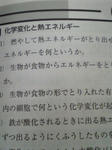 化学変化と熱エネルギー
1) 燃やして熱エネルギーがとり出せ
エネルギーを何というか。
2) 生物が食物からエネルギーをとり
か。
3) 生物が食物の形でとり入れた有
内の細胞で何という化学変化が起
鉄が酸化されるときに出る熱エ
ずつ出るようにくふうしたもの